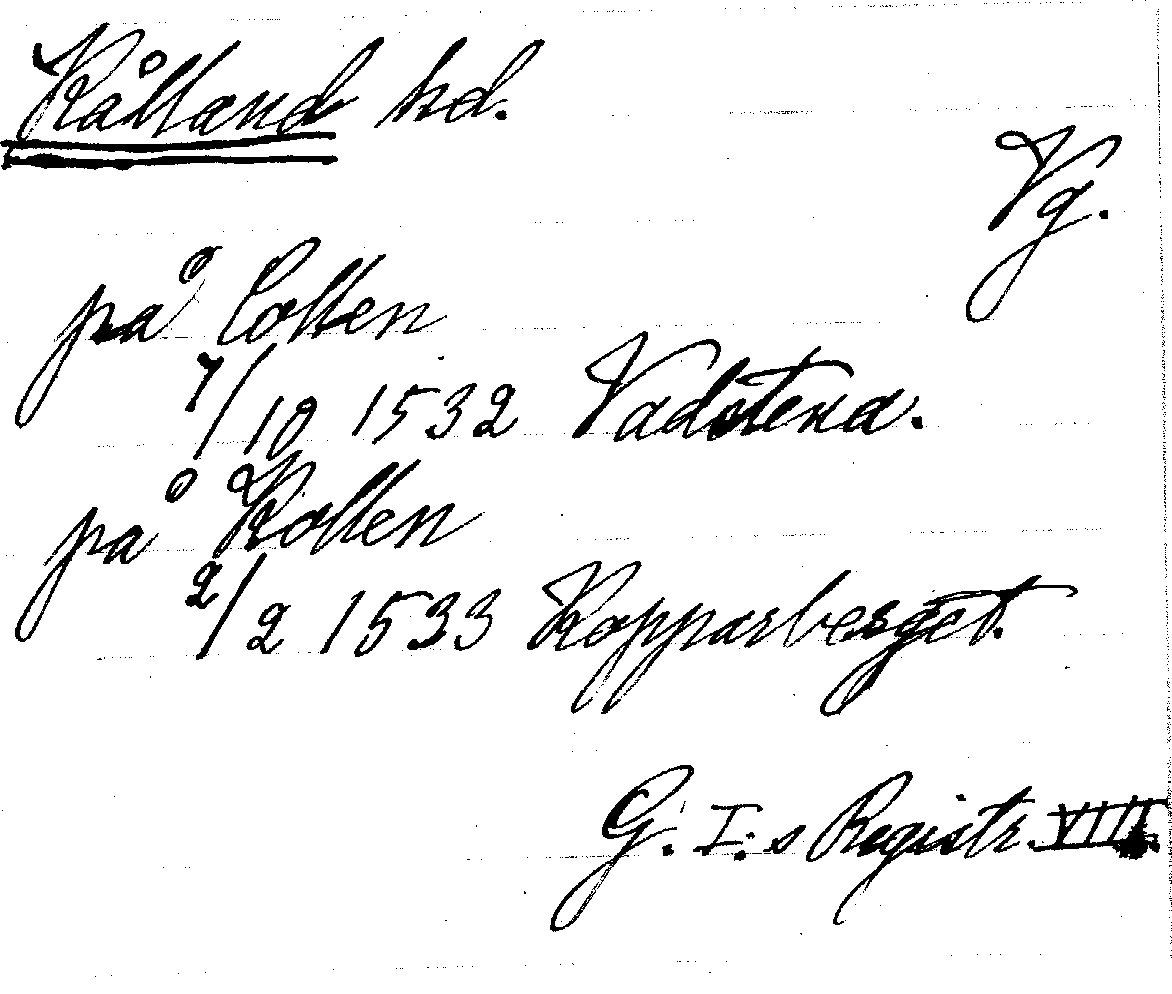 Kålland hd.
Vg.
på Collen
7/10 1532 Vadstena.
på Kollen
2/2 1533 Kopparberget.
G. I:s Registr. VIII.